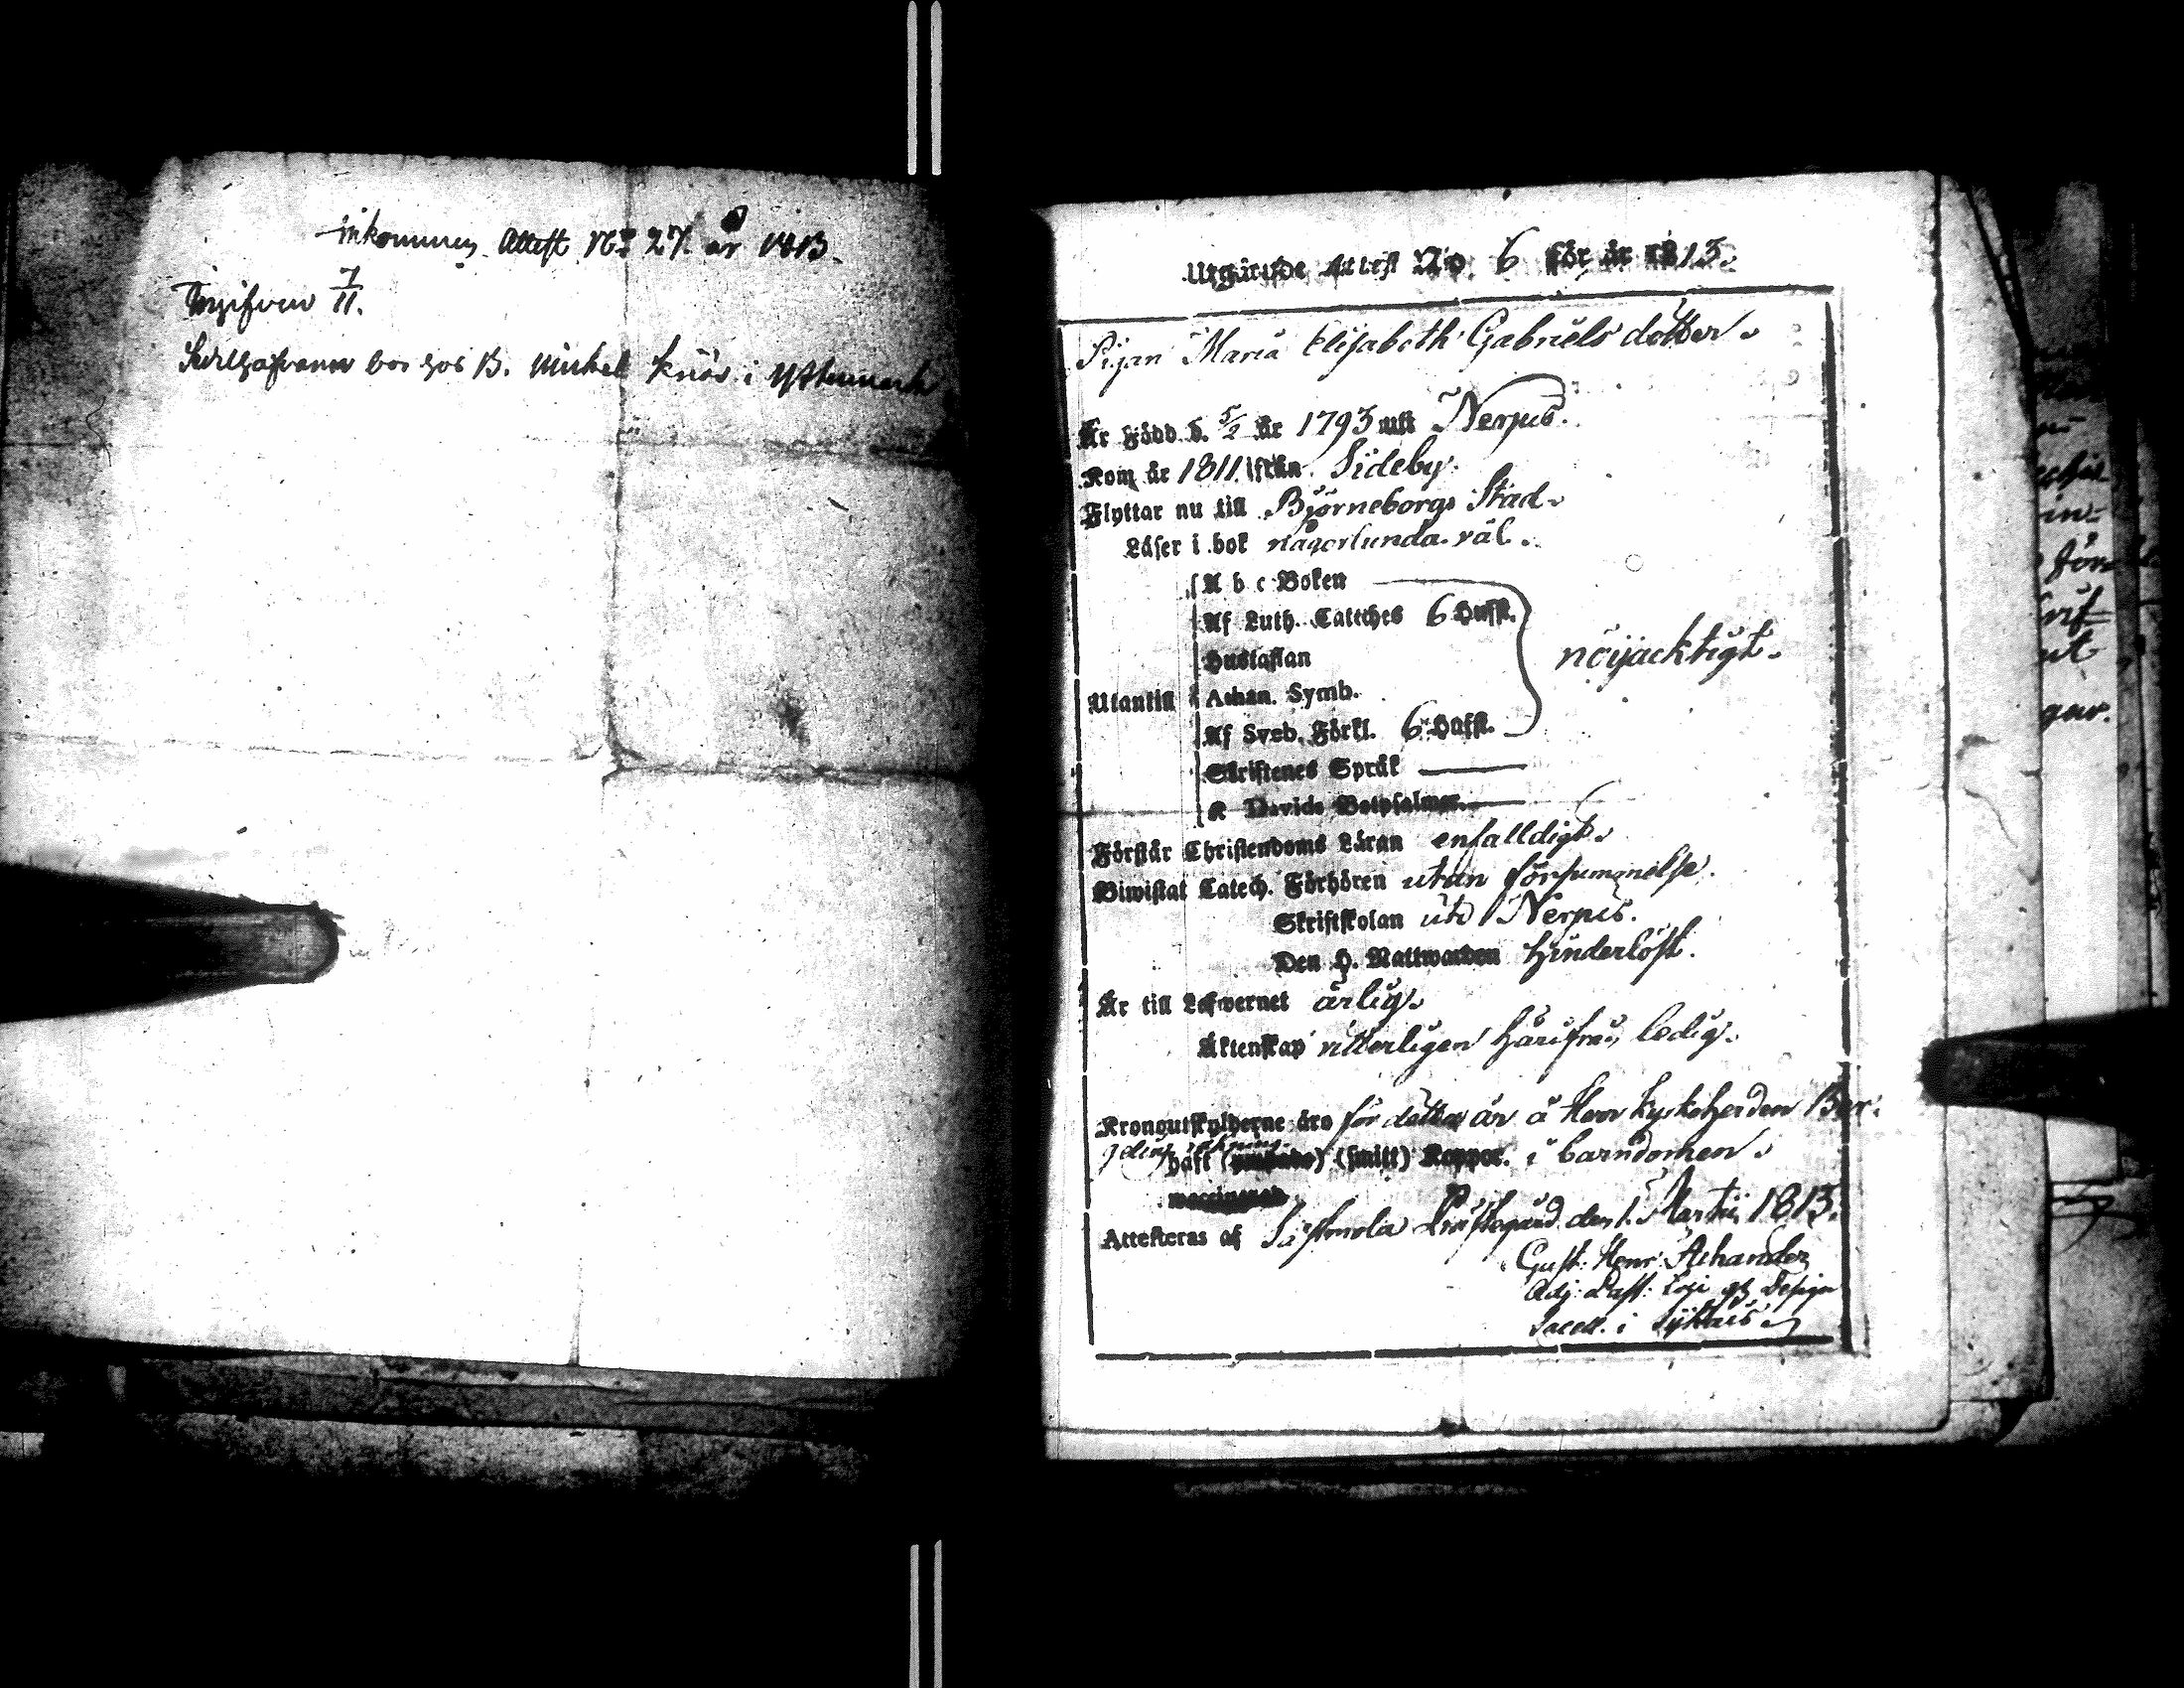 inkommen Attest No 27 år 1813.
Ingifven 7/11.
bor hos B. Michel Knös i Yttermark
Utgående Attest No. 6 för år 1813.
Pigan Maria Elisabeth Gabriels dotter.
Är Född d. 5/2 år 1793 uti Nerpis.
Kom år 1811 ifrån Sideby.
Flyttar nu till Björneborgs Stad.
Läser i bok någorlunda väl.
A b c Boken
Af Luth. Cateches 6 Hufst.
Hustaflan
nöijacktigt.
Utantill Athan. Symb.
Af Sveb. Förkl. 6 Hufst.
Skriftenes Språk
K Davids Botpsalmer.
Förstår Christendoms Läran enfalldigt.
Biwistat Catech. Förhören utan försummelse.
Skriftskolan uti Nerpis.
Den H. Nattwarden hinderlöst.
Är till Lefwernet ärlig.
Äktenskap vitterligen härifrån ledig.
Kronoutskylderne äro för detta år å Herr Kyrkoherden Ber-
gelins räkning.
haft (smitt) Koppor. i barndomen.
Attesteras af Sastmola Prästegård den 1. Martii 1813.
Gust. Henr. Achander
Adj. Past. Loci
Sacell. i